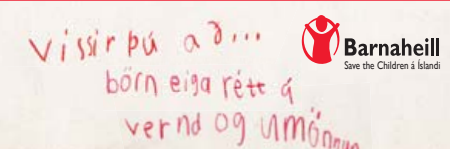 vissir þú að...
börn eiga rétt á
vernd og umönnun
Barnaheill
Save the Children á Íslandi